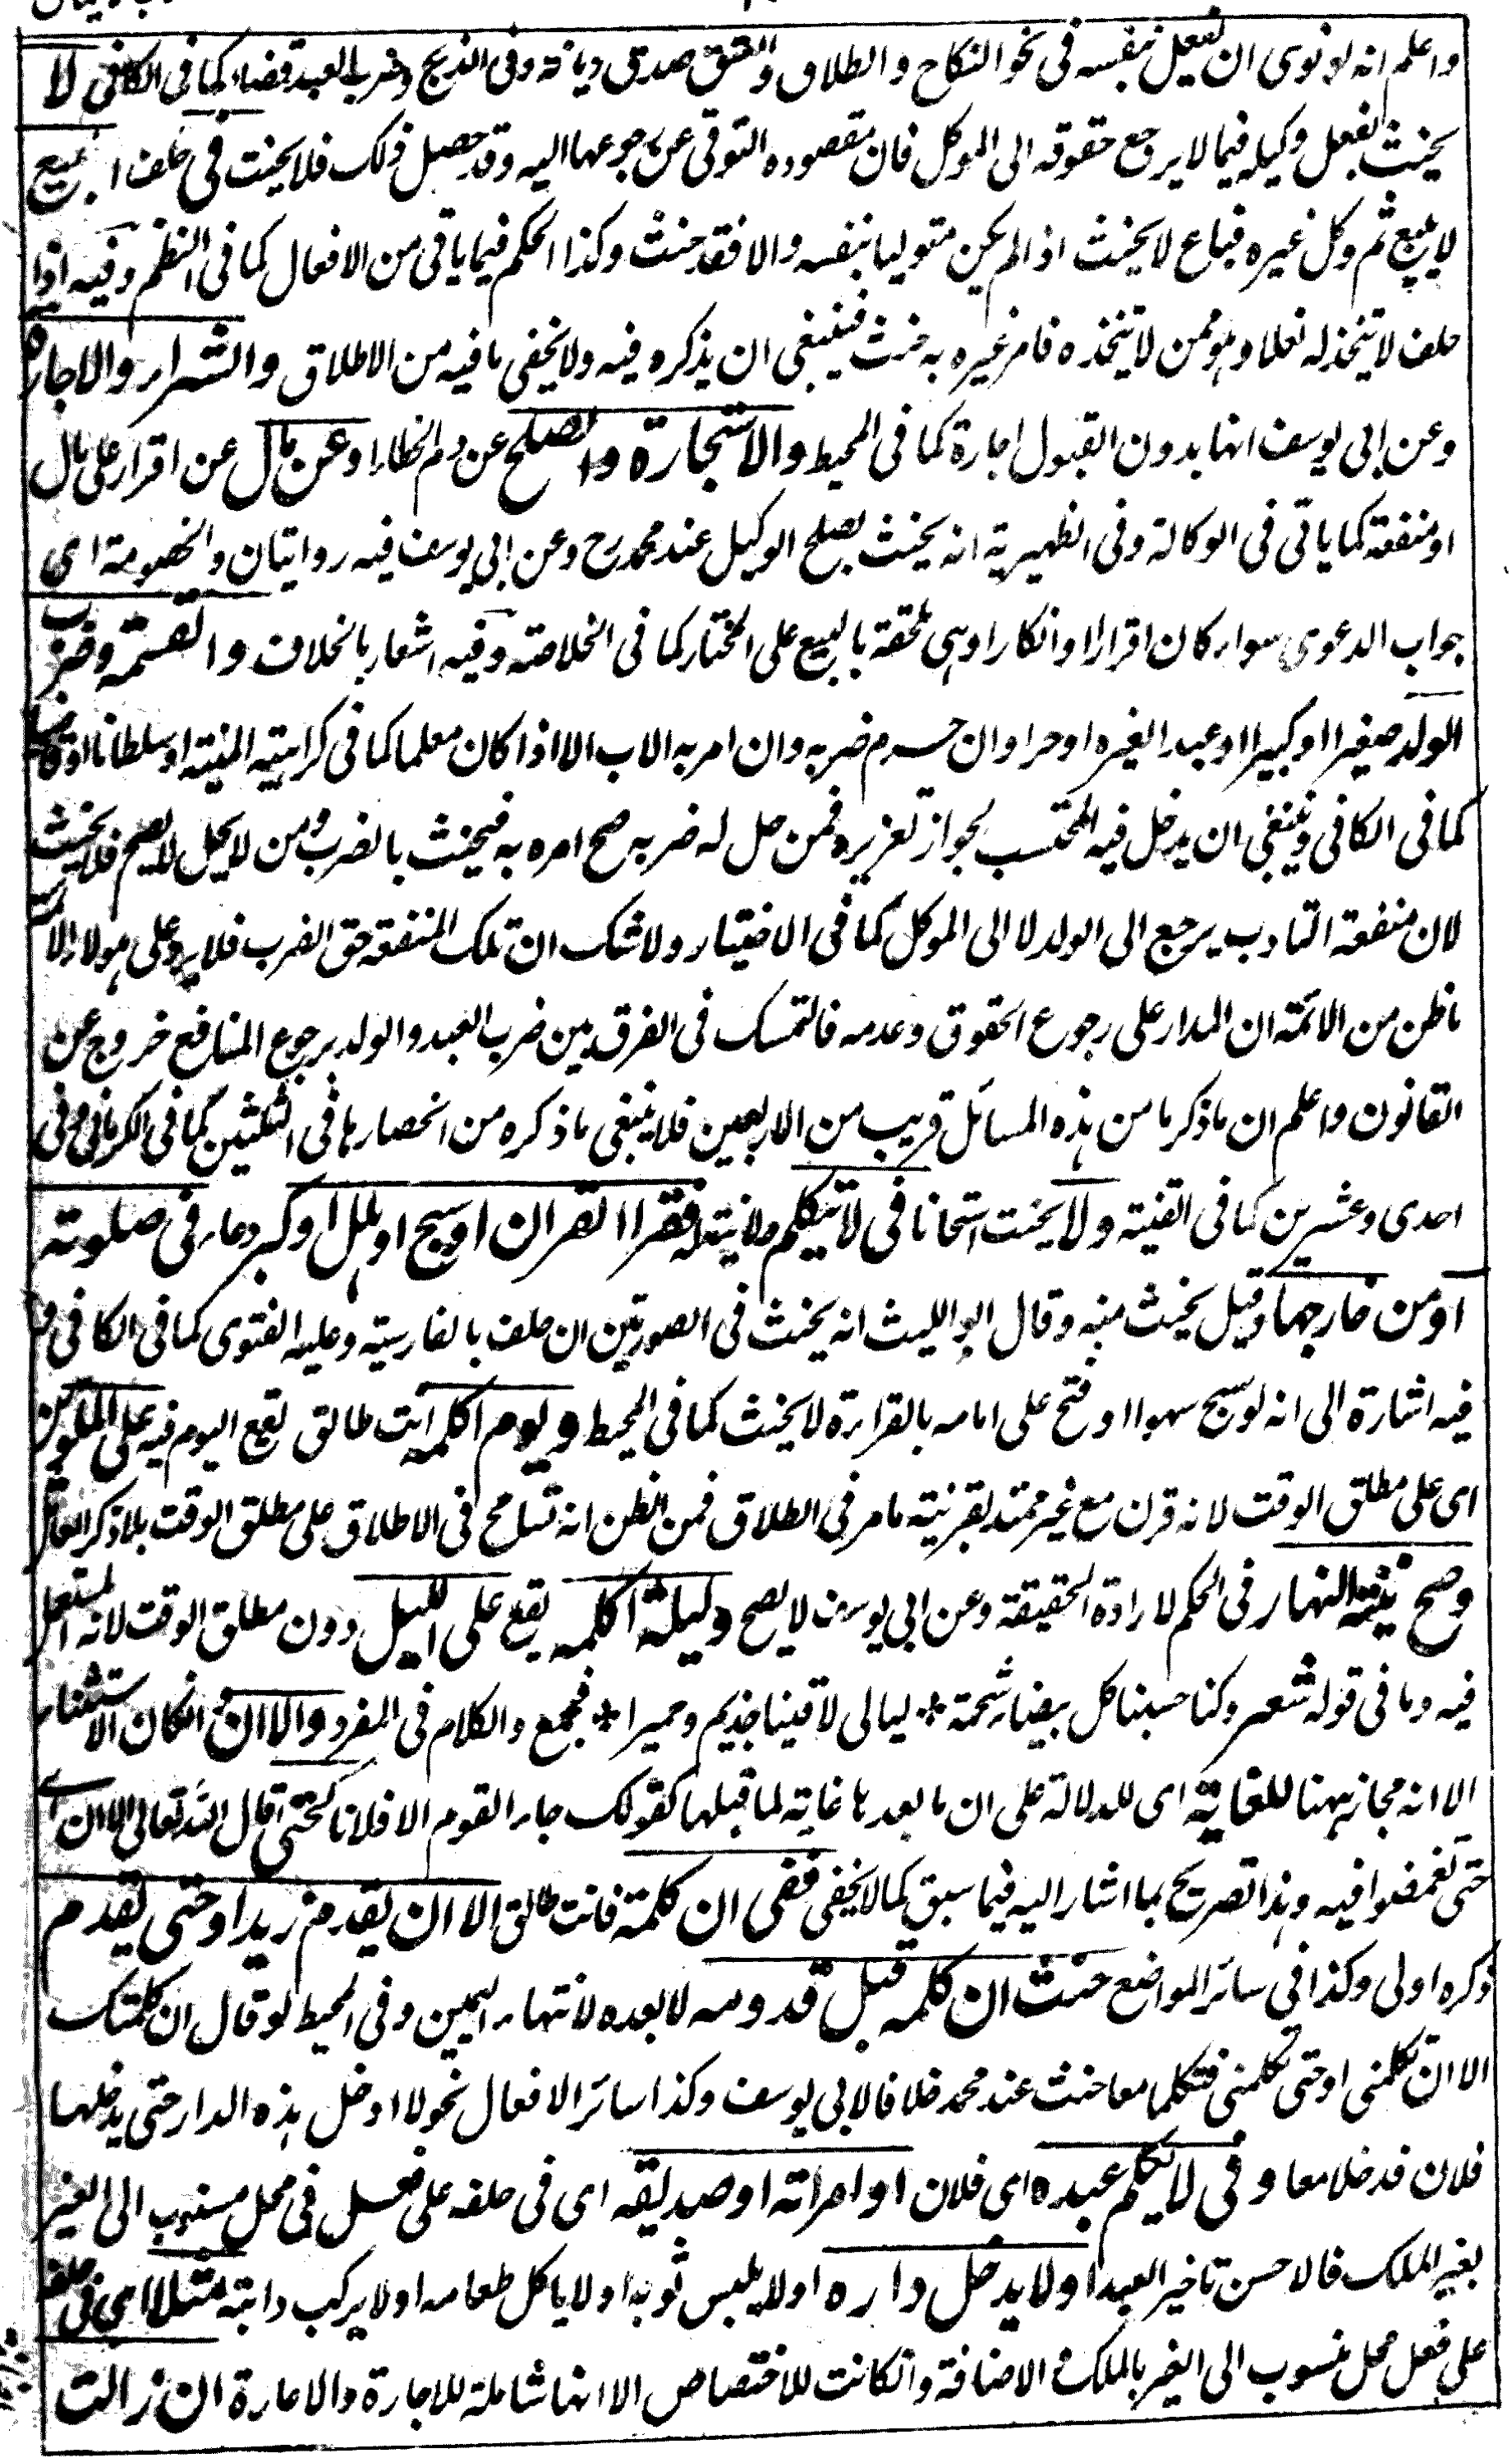 واعلم انه لو نوى ان يفعل بنفسه فى نحو النكاح والطلاق والعتق صدق ديانة وفى الذبح وضرب العبد قضاء كما فى الكافى لا
يحنث بفعل وكيله فيما لا يرجع حقوقه الى الموكل فان مقصوده التوقى عن رجوعها اليه وقد حصل ذلك فلا يحنث فى حلف البيع
لا يبيع ثم وكل غيره فباع لا يحنث اذا لم يكن متوليا بنفسه والا فقد حنث وكذا الحكم فيما ياتى من الافعال كما فى النظم وفيه اذا
حلف لا تتخذ له نعلا وهو ممن لا يتخذه فامر غيره به حنث فينبغى ان يذكر وفيه ولا يخفى ما فيه من الاطلاق والشراء والاجارة
وعن ابى يوسف انها بدون القبول اجارة كما فى المحيط والاستجارة والصلح عن دم الخطاء او عن مال عن اقرار على مال
او منفعة كما ياتى فى الوكالة وفى الظهيرية انه يحنث بصلح الوكيل عند محمد رح وعن ابى يوسف فيه روايتان والخصومة اى
جواب الدعوى سواء كان اقرارا او انكارا وهى ملحقة بالبيع على المختار كما فى الخلاصة وفيه اشعار بالخلاف والقسمة وضرب
الولد صغيرا او كبيرا او عبدا لغيره او حرا وان حرم ضربه وان امر به الاب الا اذا كان معلما كما فى كراهية المنية او سلطانا او قاضيا
كما فى الكافى وينبغى ان يدخل فيه المحتسب لجواز تعزيره فمن حل له ضربه صح امره به فيحنث بالضرب ومن لا يحل لا يصح فلا يحنث
لان منفعة التاديب يرجع الى الولد لا الى الموكل كما فى الاختيار ولا شك ان تلك المنفعة حق الضرب فلا يرد على هولاء
ما ظن من الائمة ان المدار على رجوع الحقوق وعدمه فالتمسك فى الفرق بين ضرب العبد والولد برجوع المنافع خروج عن
القانون واعلم ان ما ذكرنا من هذه المسائل قريب من الاربعين فلا ينبغى ما ذكره من انحصارها فى الثلثين كما فى الكرمانى وفى
احدى وعشرين كما فى القنية ولا يحنث استحسانا فى لا يتكلم ولا نية له فقرا القران او سبح او هلل او كبر دعاء فى صلوته
او من خارجها وقيل يحنث منه وقال ابو الليث انه يحنث فى الصورتين ان حلف بالفارسية وعليه الفتوى كما فى الكافى
فيه اشارة الى انه لو سبح سهوا او فتح على امامه بالقراءة لا يحنث كما فى المحيط ويوم اكلمه انت طالق يقع اليوم فيه على الملوين
اى على مطلق الوقت لانه قرن مع غير ممتد بقرينة ما مر فى الطلاق فمن الظن انه تسامح فى الاطلاق على مطلق الوقت بلا ذكر العامل
وصح نيته النهار فى الحكم لارادة الحقيقة وعن ابى يوسف لا يصح وليلة اكلمه يقع على الليل دون مطلق الوقت لانه المستعمل
فيه وما فى قوله شعر وكنا حسبنا كل بيضاء شحمة * ليالى لاقينا جذيم وحميرا * فجمع والكلام فى المفرد والا ان وانكان الاستثناء
الا انه مجاز ههنا للغاية اى للدلالة على ان ما بعدها غاية لما قبلها كقولك جاء القوم الا فلانا كحتى قال الله تعالى الا ان اى
حتى تغمضوا فيه وهذا تصريح بما اشار اليه فيما سبق كما لا يخفى ففى ان كلمته فانت طالق الا ان يقدم زيد او حتى يقدم
ذكره اولى وكذا فى سائر المواضع حنث ان كلمه قبل قدومه لا بعده لانتهاء اليمين وفى المحيط لو قال ان كلمتك
الا ان تكلمنى او حتى تكلمنى فتكلما معا حنث عند محمد خلافا لابى يوسف وكذا سائر الافعال نحو لا ادخل هذه الدار حتى يدخلها
فلان فدخلا معا وفى لا يكلم عبده اى فلان او امراته او صديقه اى فى حلفه على فعل فى محل منسوب الى الغير
بغير الملك فالاحسن تاخير العبد او لا يدخل داره او لا يلبس ثوبه او لا ياكل طعامه او لا يركب دابته مثلا اى فى حلفه
على فعل محل منسوب الى الغير بالملك الاضافة وانكانت للاختصاص الا انها شاملة للاجارة والاعارة ان زالت